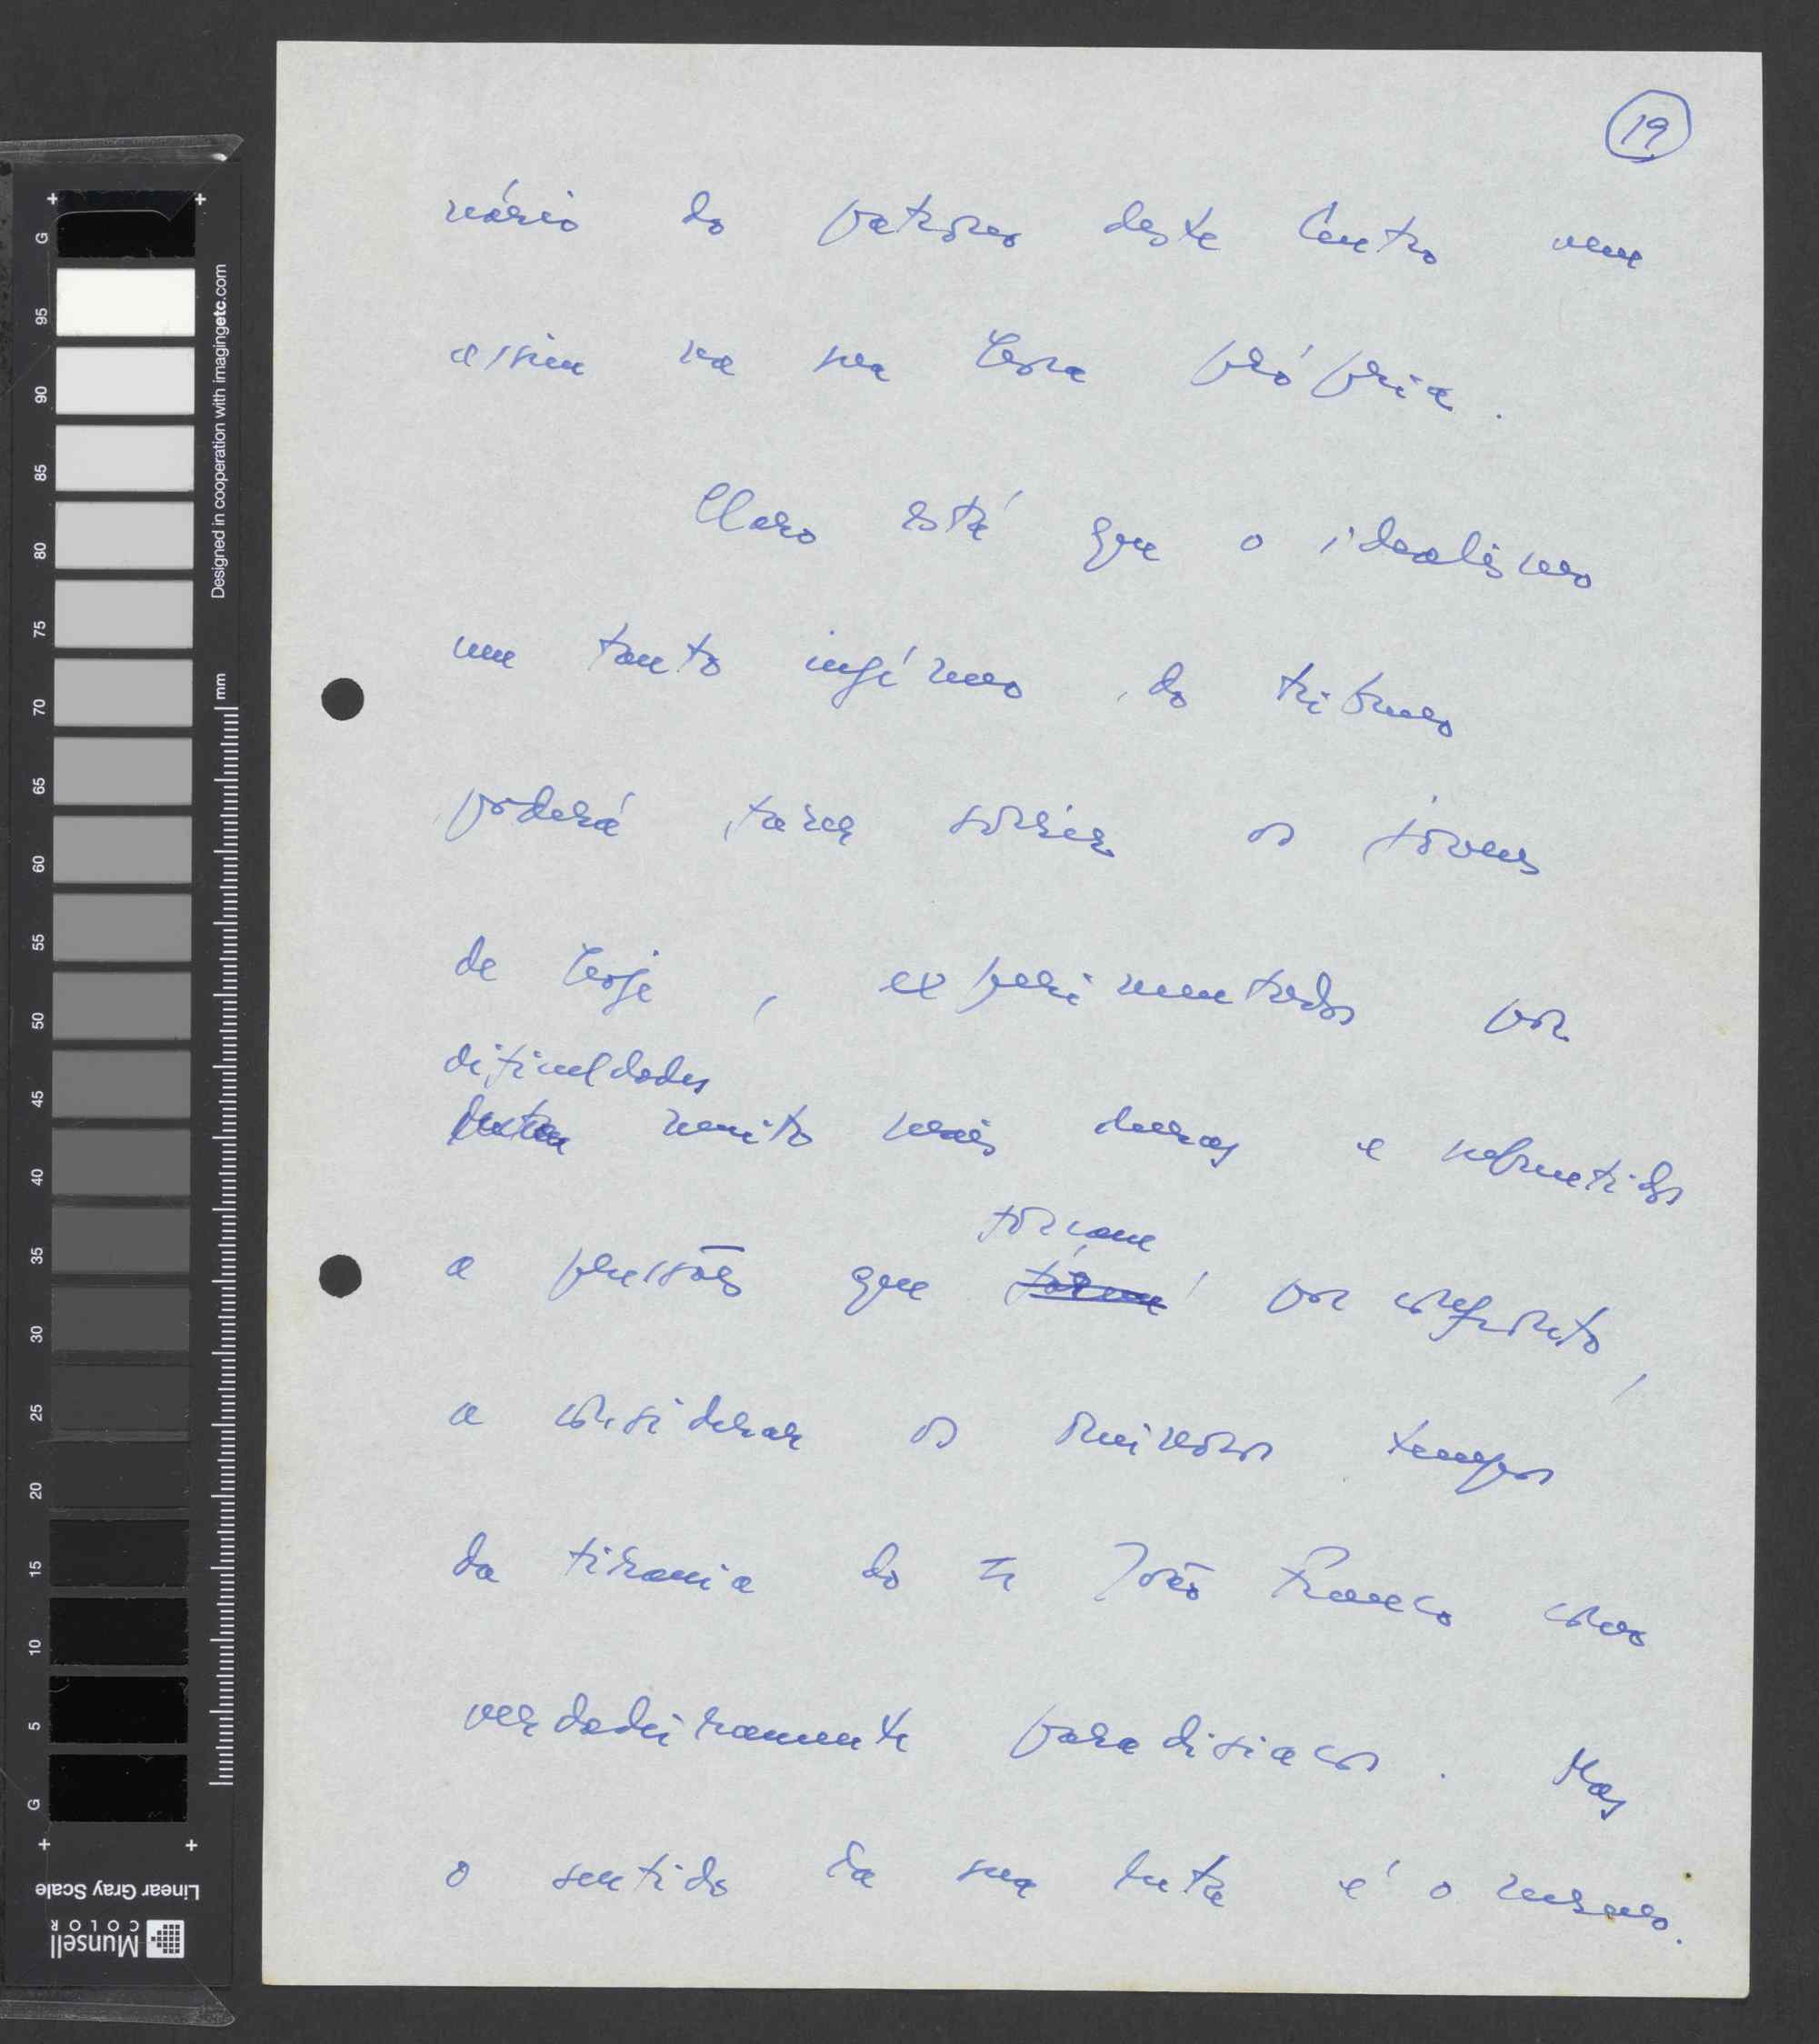 19
nário do patrono deste Centro vem
assim na sua hora própria.
Claro está que o idealismo
um tanto ingénuo do tribuno
poderá fazer sorrir os jovens
de hoje, experimentados por
dificuldades
muito mais duras e submetidos
a pressões que forçam por confronto,
a considerar os ominosos tempos
da tirania do Sr João Franco como
verdadeiramente paradisiacos. Mas
o sentido da sua luta é o mesmo.
Designed in cooperation with imagingetc.com
mm
G 95 90 85 80 75 70 65 60 55 50 45 40 35 30 25 20 15 10 5 G
Linear Gray Scale
Munsell
COLOR